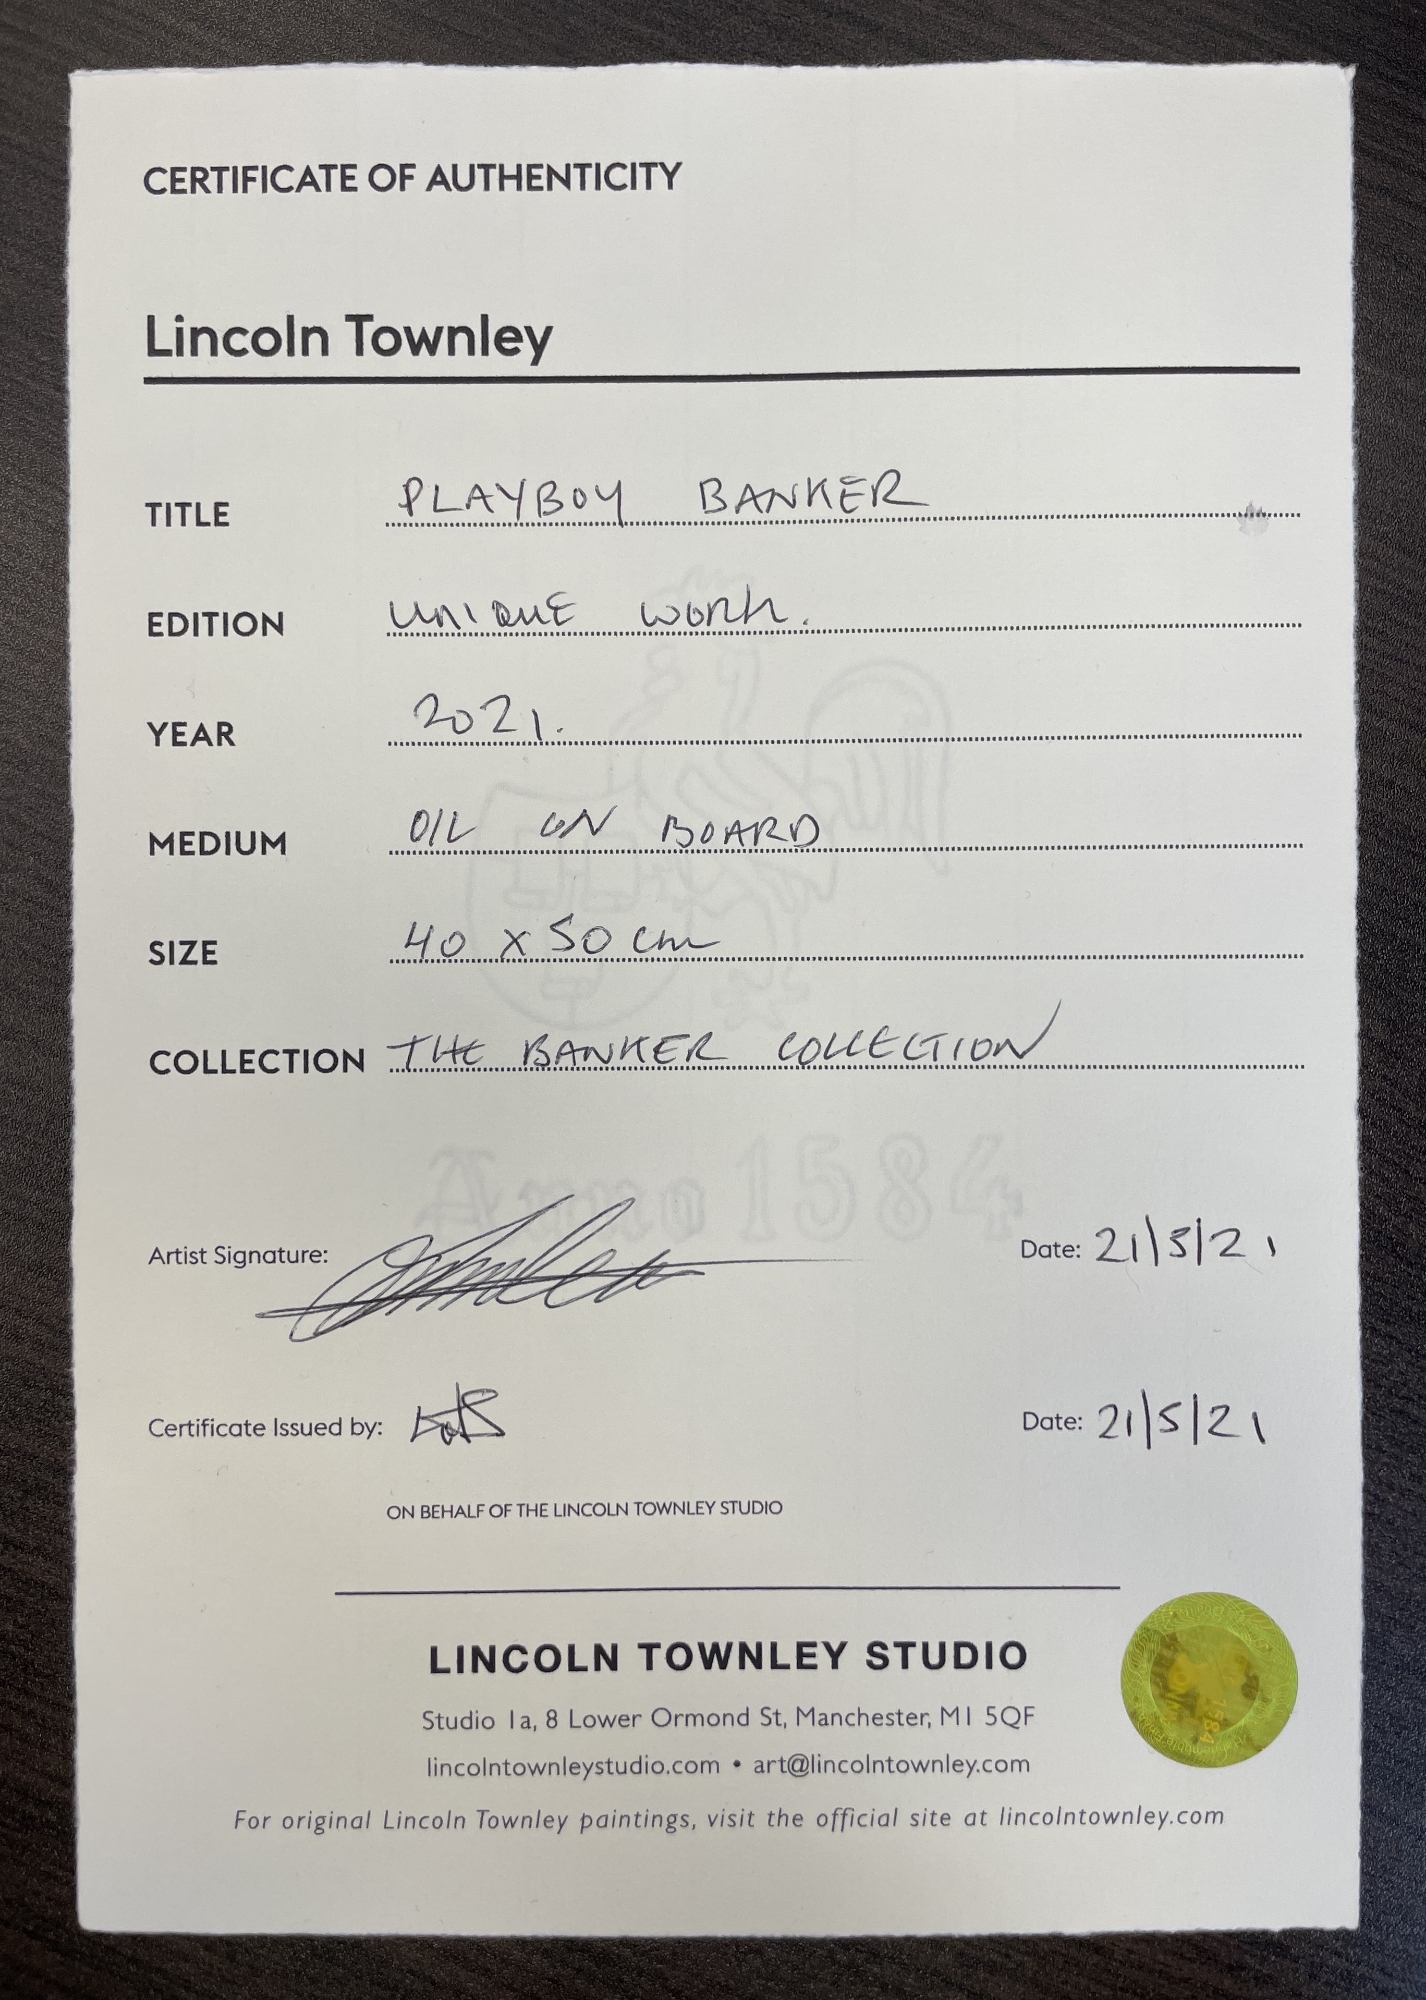 CERTIFICATE OF AUTHENTICITY
Lincoln Townley
TITLE PLAYBOY BANKER
EDITION UNIQUE WORK.
YEAR 2021.
MEDIUM OIL ON BOARD
SIZE 40 x 50 cm
COLLECTION THE BANKER COLLECTION
Anno 1584
Artist Signature: Date: 21/5/21
Certificate Issued by: Date: 21/5/21
ON BEHALF OF THE LINCOLN TOWNLEY STUDIO
LINCOLN TOWNLEY STUDIO
Studio 1a, 8 Lower Ormond St, Manchester, M1 5QF
lincolntownleystudio.com • art@lincolntownley.com
For original Lincoln Townley paintings, visit the official site at lincolntownley.com
1584